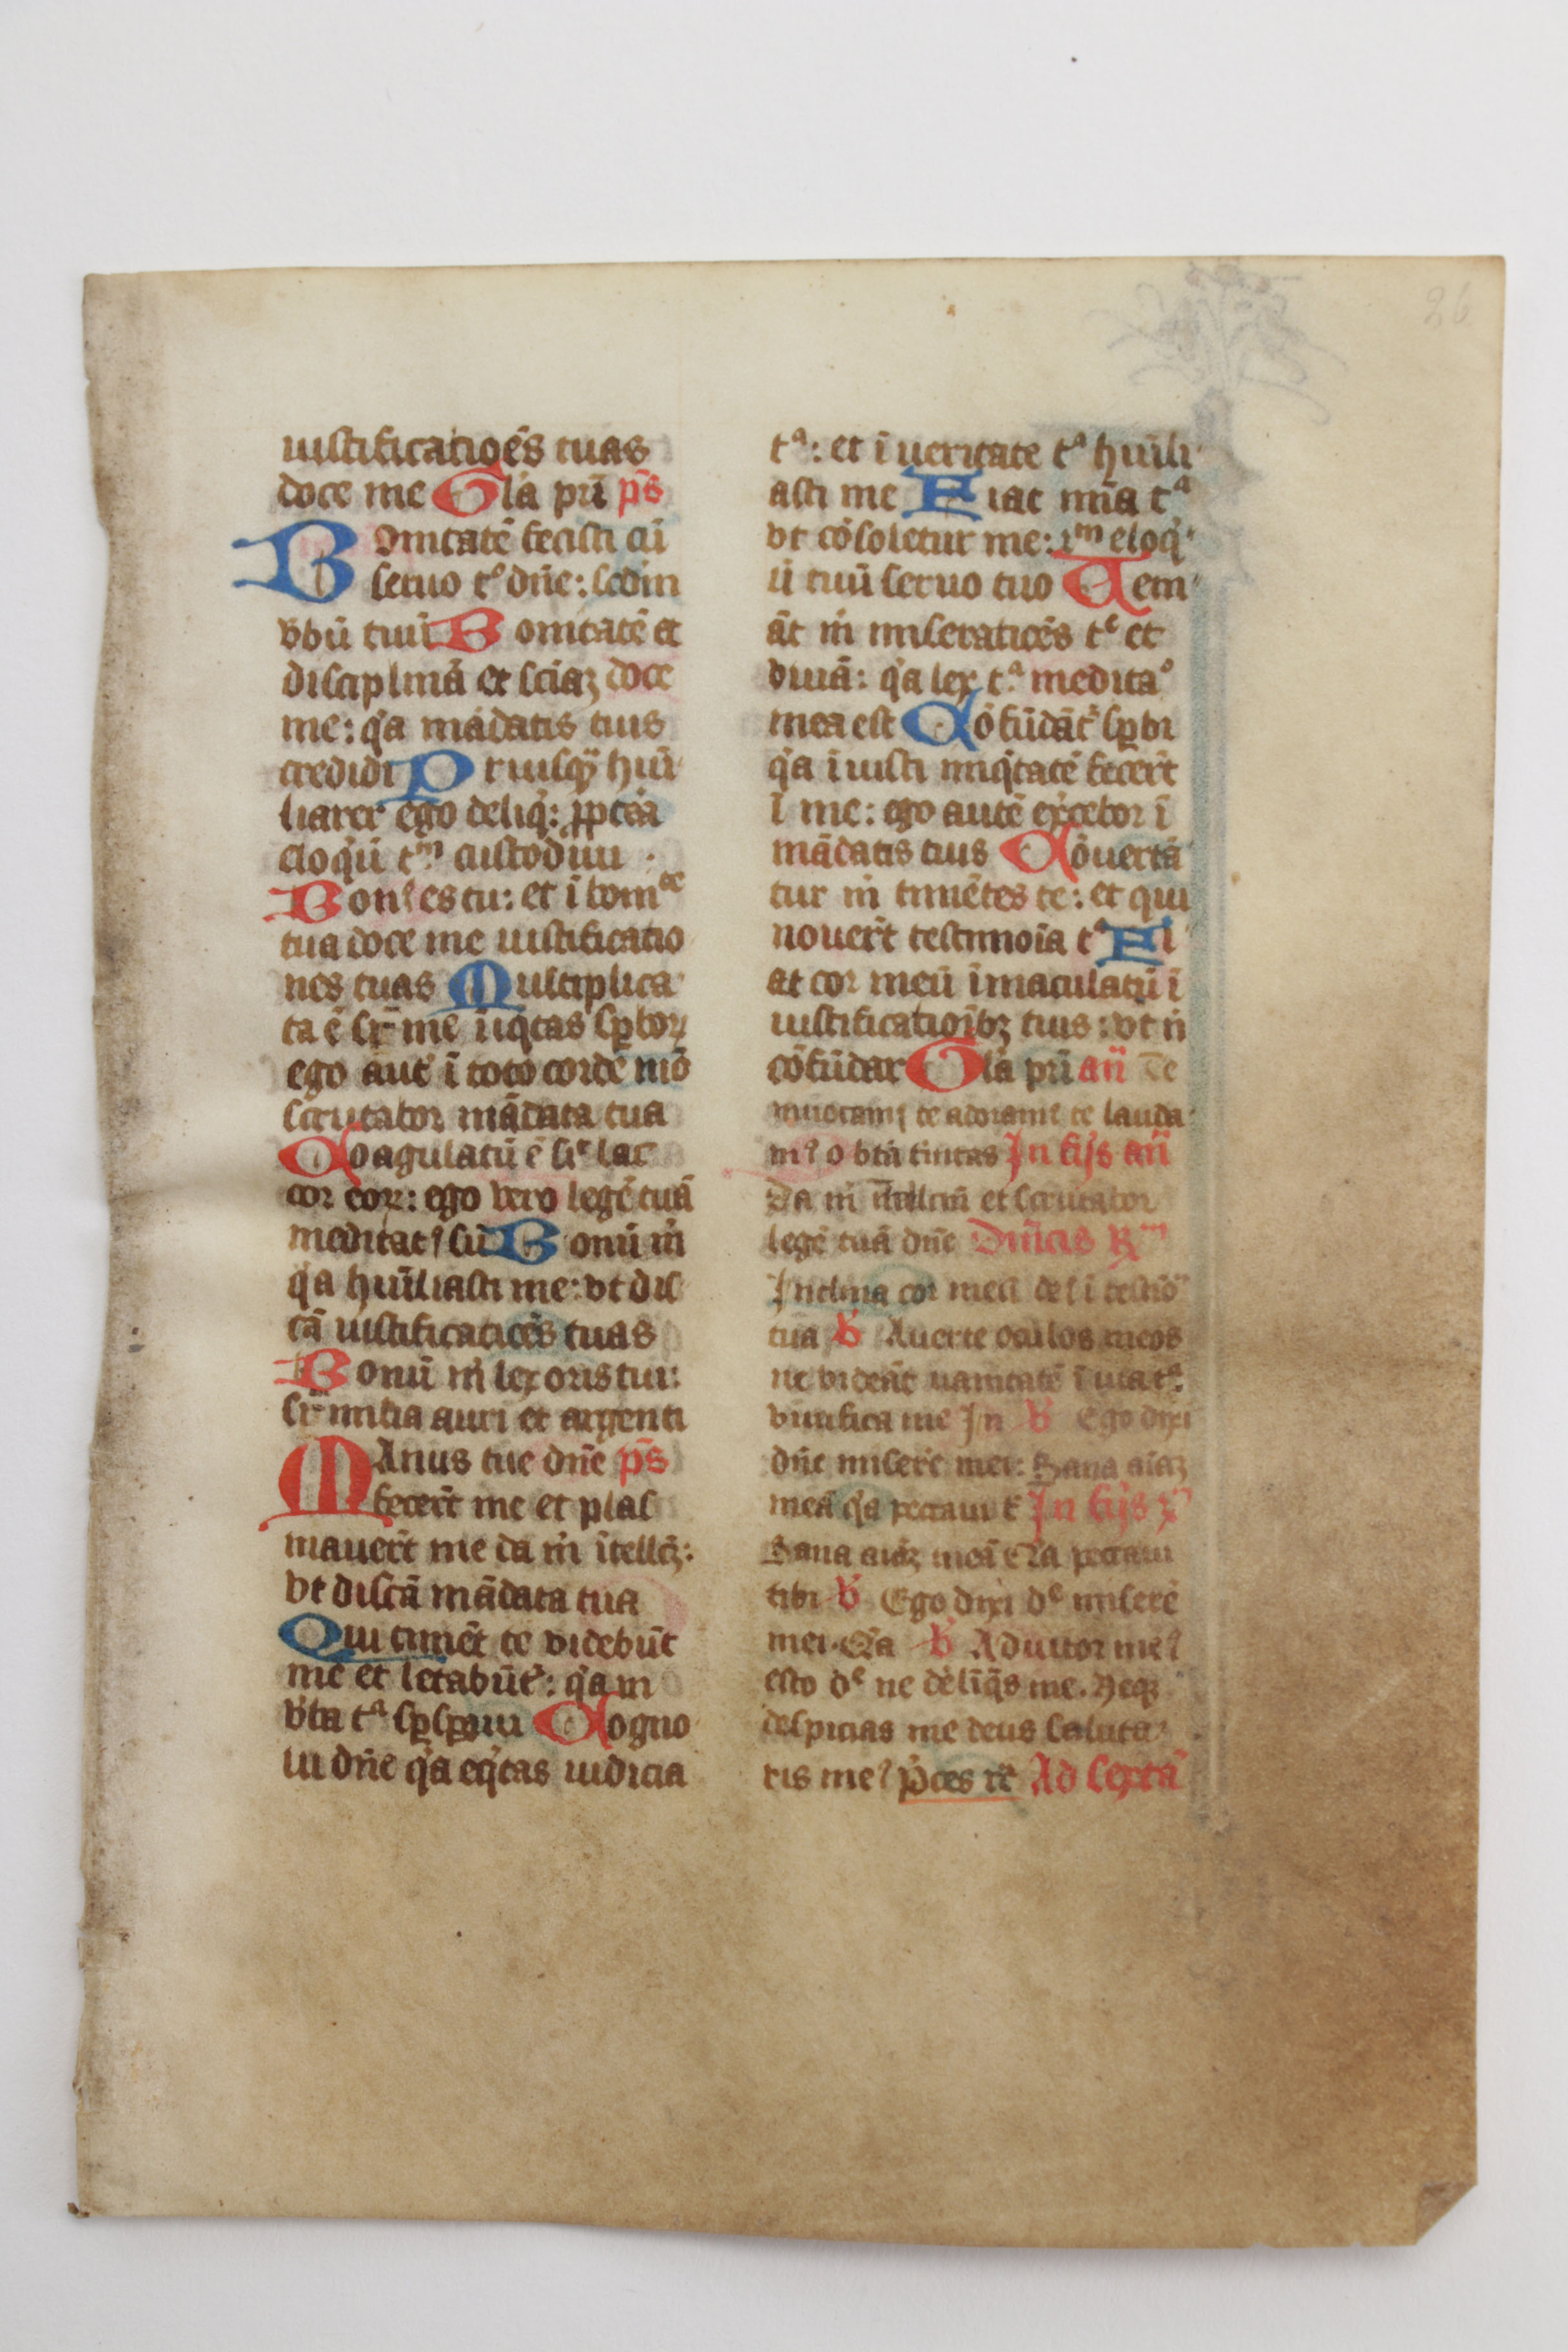 iustificatioēs tuas
doce me Gla pri ps
Bonitatē fecisti cū
seruo tᵒ dn̄e: scd̄m
v̄bū tuū Bonitatē et
disciplinā et sciāꝫ doce
me: qͥa mādatis tuis
credidi Priusqꝫ hūi
liarer ego deliqͥ: ꝓpt̄ea
eloqͥū tᵐ custodiui .
Bonꝰ es tu: et ī bonͥᵗᵃᵗᵉ
tua doce me iustificatio
nes tuas Multiplica
ta ē sr̄ me īiqͥtas suꝑboꝝ
ego aūt ī toto corde mō
scrutabor mādata tua
Coagulatū ē sicͨ lac
cor eoꝝ: ego vero legē tuā
meditatꝰ sū Bonū m̄
qͥa hūiliasti me: vt dis
cā iustificatiōēs tuas
Bonū m̄ lex oris tui:
sr̄ milia auri et argenti
MAnus tue dn̄e ps
fecer̄t me et plas
mauer̄t me da m̄ ītellc̄ꝫ:
vt discā mādata tua
Qui timēt te videbūt
me et letabūtͬ: qͥa in
v̄ba tᵃ suꝑsꝑaui Cogno
ui dn̄e qͥa eqͥtas iudicia
tᵃ: et ī ueritate tᵃ hūili
asti me Fiat mīa tᵃ
vt cōsoletur me: ẜᵐ eloqͥ
ū tuū seruo tuo Ueni
āt m̄ miseratiōēs tᵉ et
viuā: qͥa lex tᵃ meditaᵒ
mea est Cōfūdātͬ suꝑbi
qͥa īiusti iniqͥtatē fecer̄t
ī me: ego autē exͨebor ī
mādatis tuis Cōuertā
tur m̄ timētes te: et qui
nouer̄t testimōia tᵃ Fi
at cor meū īmaculatū ī
iustificatiōibꝫ tuis: vt n̄
cōfūdar Gla pri an̄ Te
inuocamꝰ te adoramꝰ te lauda
mꝰ o bt̄a tinitas In fijs an̄
Da m̄ ītellc̄m et scrutabor
legē tuā dn̄e Dn̄icis Rᵐ
Inclina cor meū deꝰ ī testiō
tua V Auerte oculos meos
ne videāt uanitatē ī uia tᵃ
viuifica me In V Ego dixi
dn̄e miserē mei: Sana aīaꝫ
meā qͥa peccaui tͥ In fijs r
Sana aīaꝫ meā Qͥa peccaui
tibi V Ego dixi dᵉ miserē
mei. Qͥa V Adiutor meꝰ
esto dᵉ ne dēlīqͣs me. Neqꝫ
despicias me deus saluta
ris meꝰ P̄ces ut̄ Ad sextā
26